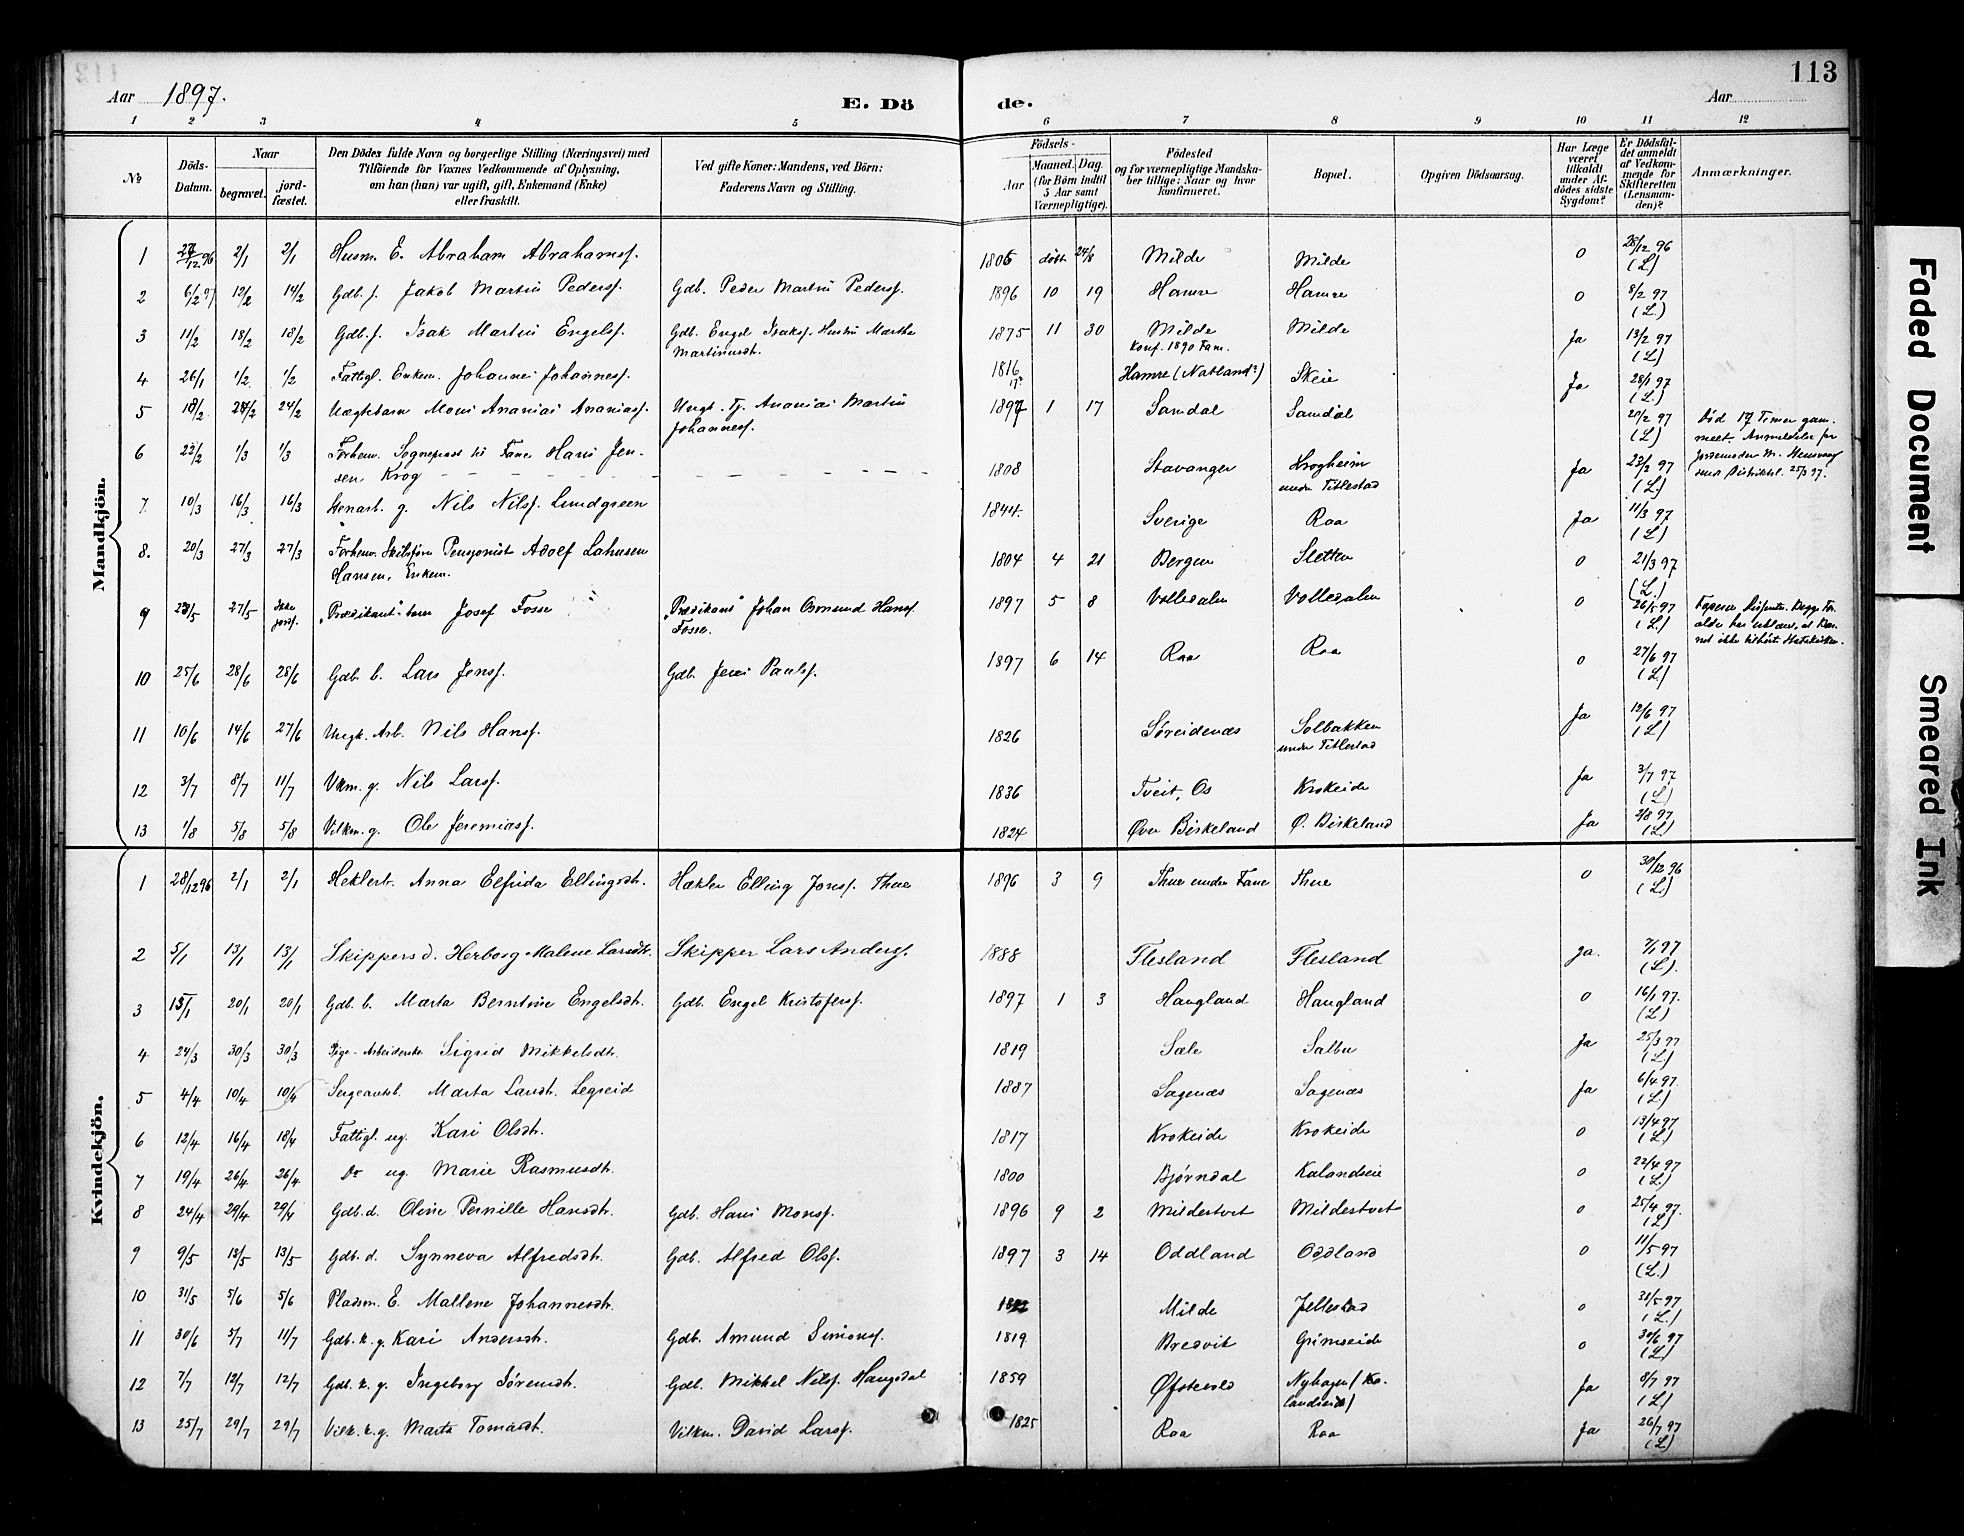 113
Aar 1897.
E. Dö
de.
Aar
1 2 3 4 5 6 7 8 9 10 11 12
№
Döds-Datum.
Naar
begravet.
jord-fæstet.
Den Dödes fulde Navn og borgerlige Stilling (Næringsvei) med
Tilföiende for Voxnes Vedkommende af Oplysning,
om han (hun) var ugift, gift, Enkemand (Enke)
eller fraskilt.
Ved gifte Koner: Mandens, ved Börn:
Faderens Navn og Stilling.
Födsels-
Aar
Maaned.
Dag.
(for Börn indtil
5 Aar samt
Værnepligtige).
Födested
og for værnepligtige Mandska-
ber tillige: Naar og hvor
konfirmeret.
Bopæl.
Opgiven Dödsaarsag.
Har Læge
været
tilkaldt
under Af-
dödes sidste
Sygdom?
Er Dödsfal-
det anmeldt
af Vedkom-
mende for
Skifteretten
(Lensman-
den)?
Anmærkninger.
Mandkjön.
1 27/12 96 2/1 2/1 Husm. E. Abraham Abrahamsf. 1806 døbt 24/8 Milde Milde 0 28/12 96 (L)
2 6/2 97 12/2 14/2 Gdb. s. Jakob Martin Pedersf. Gdb. Peder Martin Pedersf. 1896 10 19 Hamre Hamre 0 8/2 97 (L.)
3 11/2 18/2 18/2 Gdb. s. Isak Martin Engelsf. Gdb. Engel Isaksf. Hustru Martha 1875 11 30 Milde Milde Ja 13/2 97 (L)
Martinusdt. Konf. 1890 Fane.
4 26/1 1/2 1/2 Fattigl. Enkem. Johannes Johannesf. 1816 Hamre (Natland?) Skeie Ja 28/1 97 (L.)
5 18/2 24/2 24/2 Uægtebarn Mons Ananias Ananiasf. Ungk. Tj. Ananias Martin 1897 1 17 Samdal Samdal 20/2 97 (L) Død 17 Timer gam-
Johannesf. melt. Anmeldelse fra
6 22/2 1/3 1/3 Forhenv. Sogneprest til Fane Hans Jen- 1808 Stavanger Krogheim Ja 23/2 97 (L)
sen Krog under Titlestad
7 10/3 16/3 16/3 Stenarb. g. Nils Nilsf. Lundgreen 1844. Sverige Raa Ja 11/3 97 (L)
8. 20/3 27/3 27/3 Forhenv. Skibsfører Pensionist Adolf Lahusen 1804 4 21 Bergen Sletten 0 21/3 97 (L.)
Hansen, Enkem.
9 23/5 27/5 Ikke jordf. „Prædikant"-barn Josef Fosse „Prædikant" Johan Osmund Hansf. 1897 5 8 Vollesdalen Vollesdalen 0 26/5 97 (L)
Fosse.
10 25/6 28/6 28/6 Gdb. b. Lars Jensf. Gdb. Jens Paulsf. 1897 6 14 Raa Raa 0 27/6 97 (L)
11 10/6 14/6 27/6 Ungk. Arb. Nils Hansf. 1826 Søreidenæs Solbakken Ja 12/6 97 (L)
under Titlestad
12 3/7 8/7 11/7 Vkm. g. Nils Larsf. 1836 Tveit, Os Krokeide Ja 3/7 97 (L)
13 1/8 5/8 5/8 Vilkm. g. Ole Jeremiasf. 1824 Øvre Birkeland Ø. Birkeland Ja 2/8 97 (L)
Kvindekjön.
1 28/12 96 2/1 2/1 Heklerb. Anna Elfrida Ellingsdt. Hækler Elling Jonsf. Thue 1896 3 9 Thue under Fane Thue 0 30/12 96 (L.)
2 5/1 13/1 13/1 Skippersd. Herborg Malene Larsdt. Skipper Lars Andersf. 1888 Flesland Flesland ja. 7/1 97 (L).
3 15/1 20/1 20/1 Gdb. b. Marta Berntine Engelsdt. Gdb. Engel Kristofersf. 1897 1 3 Haugland Haugland 0 16/1 97. (L)
4 24/3 30/3 30/3 Pige-Arbeiderske Sigrid Mikkelsdt. 1819 Sæle Salbu Ja 25/3 97 (L)
5 4/4 10/4 10/4 Sergeantsb. Marta Larsdt. Legreid 1887 Sagenæs Sagenæs Ja 6/4 97. (L)
6 12/4 16/4 18/4 Fattigl. ug. Kari Olsdt. 1817 Krokeide Krokeide 0 13/4 97 (L)
7 19/4 26/4 26/4 Do ug. Marie Rasmusdt. 1800 Bjørndal Kalandseie 0 22/4 97 (L)
8 24/4 29/4 29/4 Gdb. d. Oline Pernille Hansdt. Gdb. Hans Monsf. 1896 9 2 Mildestvet Mildestvet 0 25/4 97. (L)
9 9/5 13/5 13/5 Gdb. d. Synneva Alfredsdt. Gdb. Alfred Olsf. 1897 3 14 Oddland Oddland 0 11/5 97 (L.)
10 31/5 5/6 5/6 Pladsm. E. Mallene Johannesdt. Milde Jellestad 0 31/5 97 (L.)
11 30/6 5/7 11/7 Gdb. k. g. Kari Andersdt. Gdb. Amund Simonsf. 1819 Bredvik Grimseide 0 30/6 97 (L)
12 7/7 12/7 12/7 Gdb. k. g. Ingeborg Sørensdt. Gdb. Mikkel Nilsf. Haugsdal 1859 Øfstevold Nyhagen (Ka- Ja 8/7 97 (L)
landseid)
13 25/7 29/7 29/7 Vilk. k. g. Marta Tomasdt. Vilkm. David Larsf. 1825 Raa Raa Ja 26/7 97 (L)
Faded Document
Smeared Ink